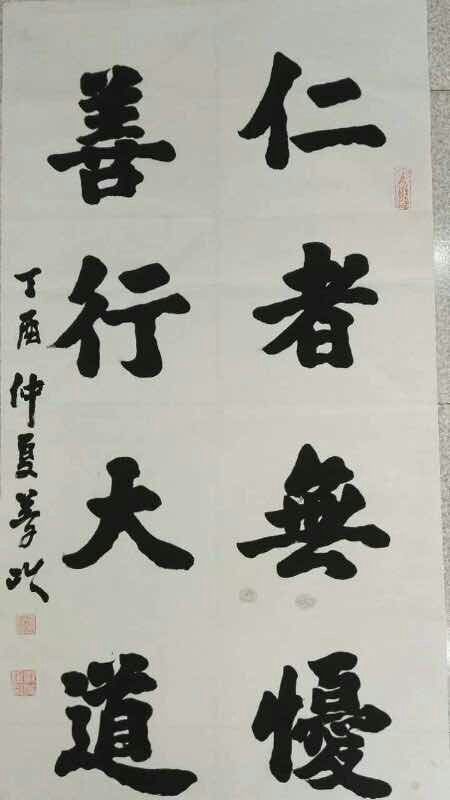 仁者無憂
善行大道
丁酉仲夏